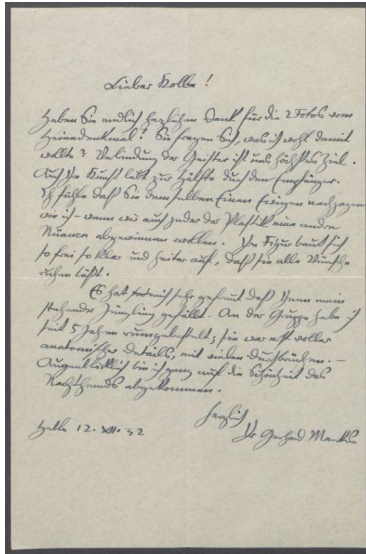 Lieber Kolbe!
Haben Sie endlich herzlichen Dank für die 2 Fotos vom
Heinedenkmal! Sie fragen sich, was ich wohl damit
wollte? Verbindung der Geister ist uns höchstes Ziel.
Auch die Kunst lebt zur Hälfte durch den Empfänger.
Ich fühle daß Sie demselben Einen Ewigen nachjagen
wie ich – wenn wir auch jeder der Plastik eine andre
Nüance abgewinnen wollen. Die Figur baut sich
so frei so klar und heiter auf, daß sie alle Wünsche
schen läßt.
Es hat mich sehr gefreut daß Ihnen mein
stehender Jüngling gefällt. An der Gruppe habe ich
seit 5 Jahren rumgebastelt; sie war erst voller
anatomischer Details, mit vielen Durchbrüchen. –
Augenblicklich bin ich ganz auf die Schönheit des
abgekommen.
Herzlich
Halle 12. XII. 32
Ihr Gerhard Marcks